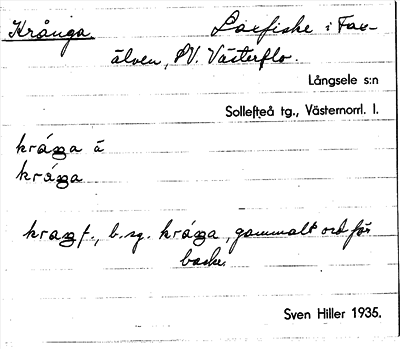 Krånga. Laxfiske i Fax-
älven, SV. Västerflo.
Långsele s:n
Sollefteå tg., Västernorrl. l.
kráŋa ä
kráŋa
kraŋ f., b. sg. kráŋa, gammalt ord för
backe.
Sven Hiller 1935.